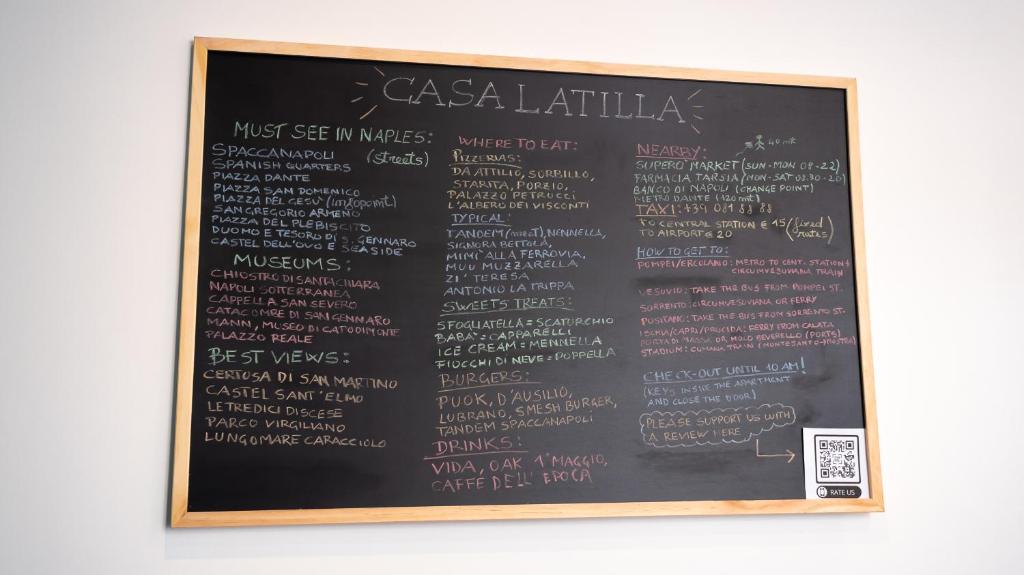 CASA LATILLA
MUST SEE IN NAPLES:
SPACCANAPOLI (streets)
SPANISH QUARTERS
PIAZZA DANTE
PIAZZA SAN DOMENICO
PIAZZA DEL GESU' (infopoint)
SAN GREGORIO ARMENO
PIAZZA DEL PLEBISCITO
DUOMO E TESORO DI S. GENNARO
CASTEL DELL'OVO E SEASIDE
MUSEUMS:
CHIOSTRO DI SANTA CHIARA
NAPOLI SOTTERRANEA
CAPPELLA SAN SEVERO
CATACOMBE DI SAN GENNARO
MANN, MUSEO DI CAPODIMONTE
PALAZZO REALE
BEST VIEWS:
CERTOSA DI SAN MARTINO
CASTEL SANT'ELMO
LE TREDICI DISCESE
PARCO VIRGILIANO
LUNGOMARE CARACCIOLO
WHERE TO EAT:
PIZZERIAS:
DA ATTILIO, SORBILLO,
STARITA, PORZIO,
PALAZZO PETRUCCI
L'ALBERO DEI VISCONTI
TYPICAL:
TANDEM (meet), NENNELLA,
SIGNORA BETTOLA,
MIMI' ALLA FERROVIA,
MUU MUZZARELLA
ZI' TERESA
ANTONIO LA TRIPPA
SWEETS TREATS:
SFOGLIATELLA = SCATURCHIO
BABA' = CAPPARELLI
ICE CREAM = MENNELLA
FIOCCHI DI NEVE = POPPELLA
BURGERS:
PUOK, D'AUSILIO,
LUBRANO, SMESH BURGER,
TANDEM SPACCANAPOLI
DRINKS:
VIDA, OAK 1° MAGGIO,
CAFFÉ DELL'EPOCA
40 mt
NEARBY:
SUPERO' MARKET (SUN-MON 09-22)
FARMACIA TARSIA (MON-SAT 08.30-20)
BANCO DI NAPOLI (CHANGE POINT)
METRO DANTE (120 mt)
TAXI: +39 081 88 88
TO CENTRAL STATION € 15 (fixed
TO AIRPORT € 20 rates)
HOW TO GET TO:
POMPEI/ERCOLANO: METRO TO CENT. STATION +
CIRCUMVESUVIANA TRAIN
VESUVIO: TAKE THE BUS FROM POMPEI ST.
SORRENTO: CIRCUMVESUVIANA OR FERRY
POSITANO: TAKE THE BUS FROM SORRENTO ST.
ISCHIA/CAPRI/PROCIDA: FERRY FROM CALATA
PORTA DI MASSA OR MOLO BEVERELLO (PORTS)
STADIUM: CUMANA TRAIN (MONTESANTO → MOSTRA)
CHECK-OUT UNTIL 10 AM!
(KEYS INSIDE THE APARTMENT
AND CLOSE THE DOOR)
PLEASE SUPPORT US WITH
A REVIEW HERE
RATE US